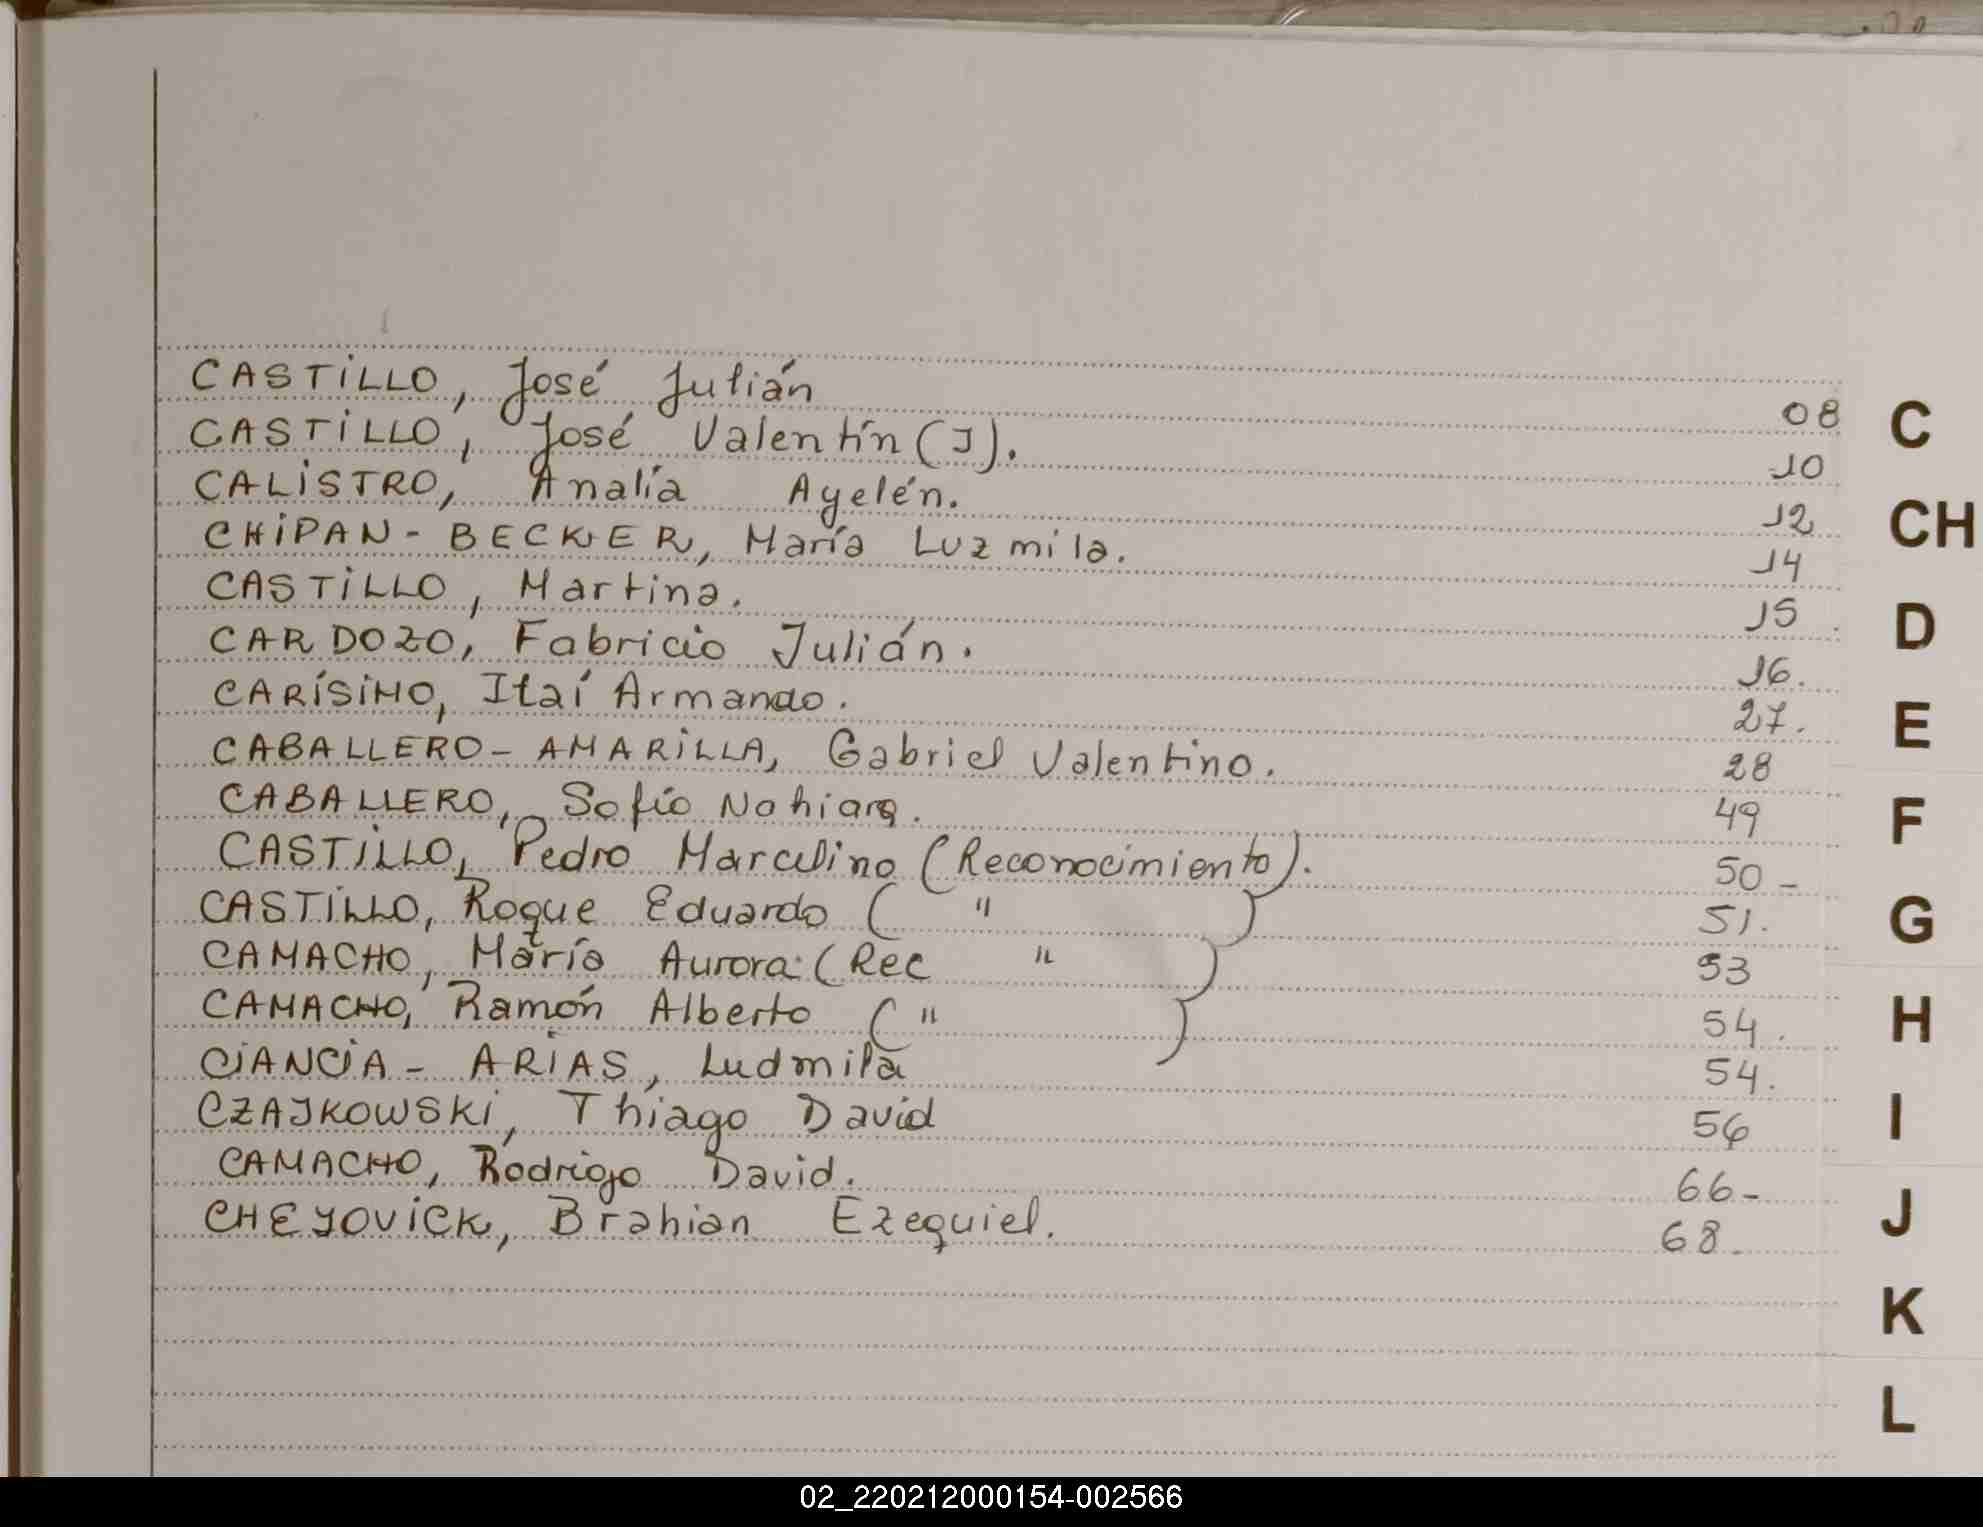 CASTILLO, José Julián 08
CASTILLO, José Valentín (J). 10
CALISTRO, Analía Ayelén. 12
CHIPAN - BECKER, María Luzmila. 14
CASTILLO, Martina. 15
CARDOZO, Fabricio Julián. 16.
CARÍSIMO, Itaí Armando. 27.
CABALLERO - AMARILLA, Gabriel Valentino. 28
CABALLERO, Sofía Nahiara. 49
CASTILLO, Pedro Marcelino (Reconocimiento). 50 -
CASTILLO, Roque Eduardo ( " ) 51.
CAMACHO, María Aurora (Rec " ) 53
CAMACHO, Ramón Alberto ( " ) 54.
CIANCIA - ARIAS, Ludmila 54.
CZAJKOWSKI, Thiago David 56
CAMACHO, Rodrigo David. 66 -
CHEYOVICK, Brahian Ezequiel. 68.
C
CH
D
E
F
G
H
I
J
K
L
02_220212000154-002566